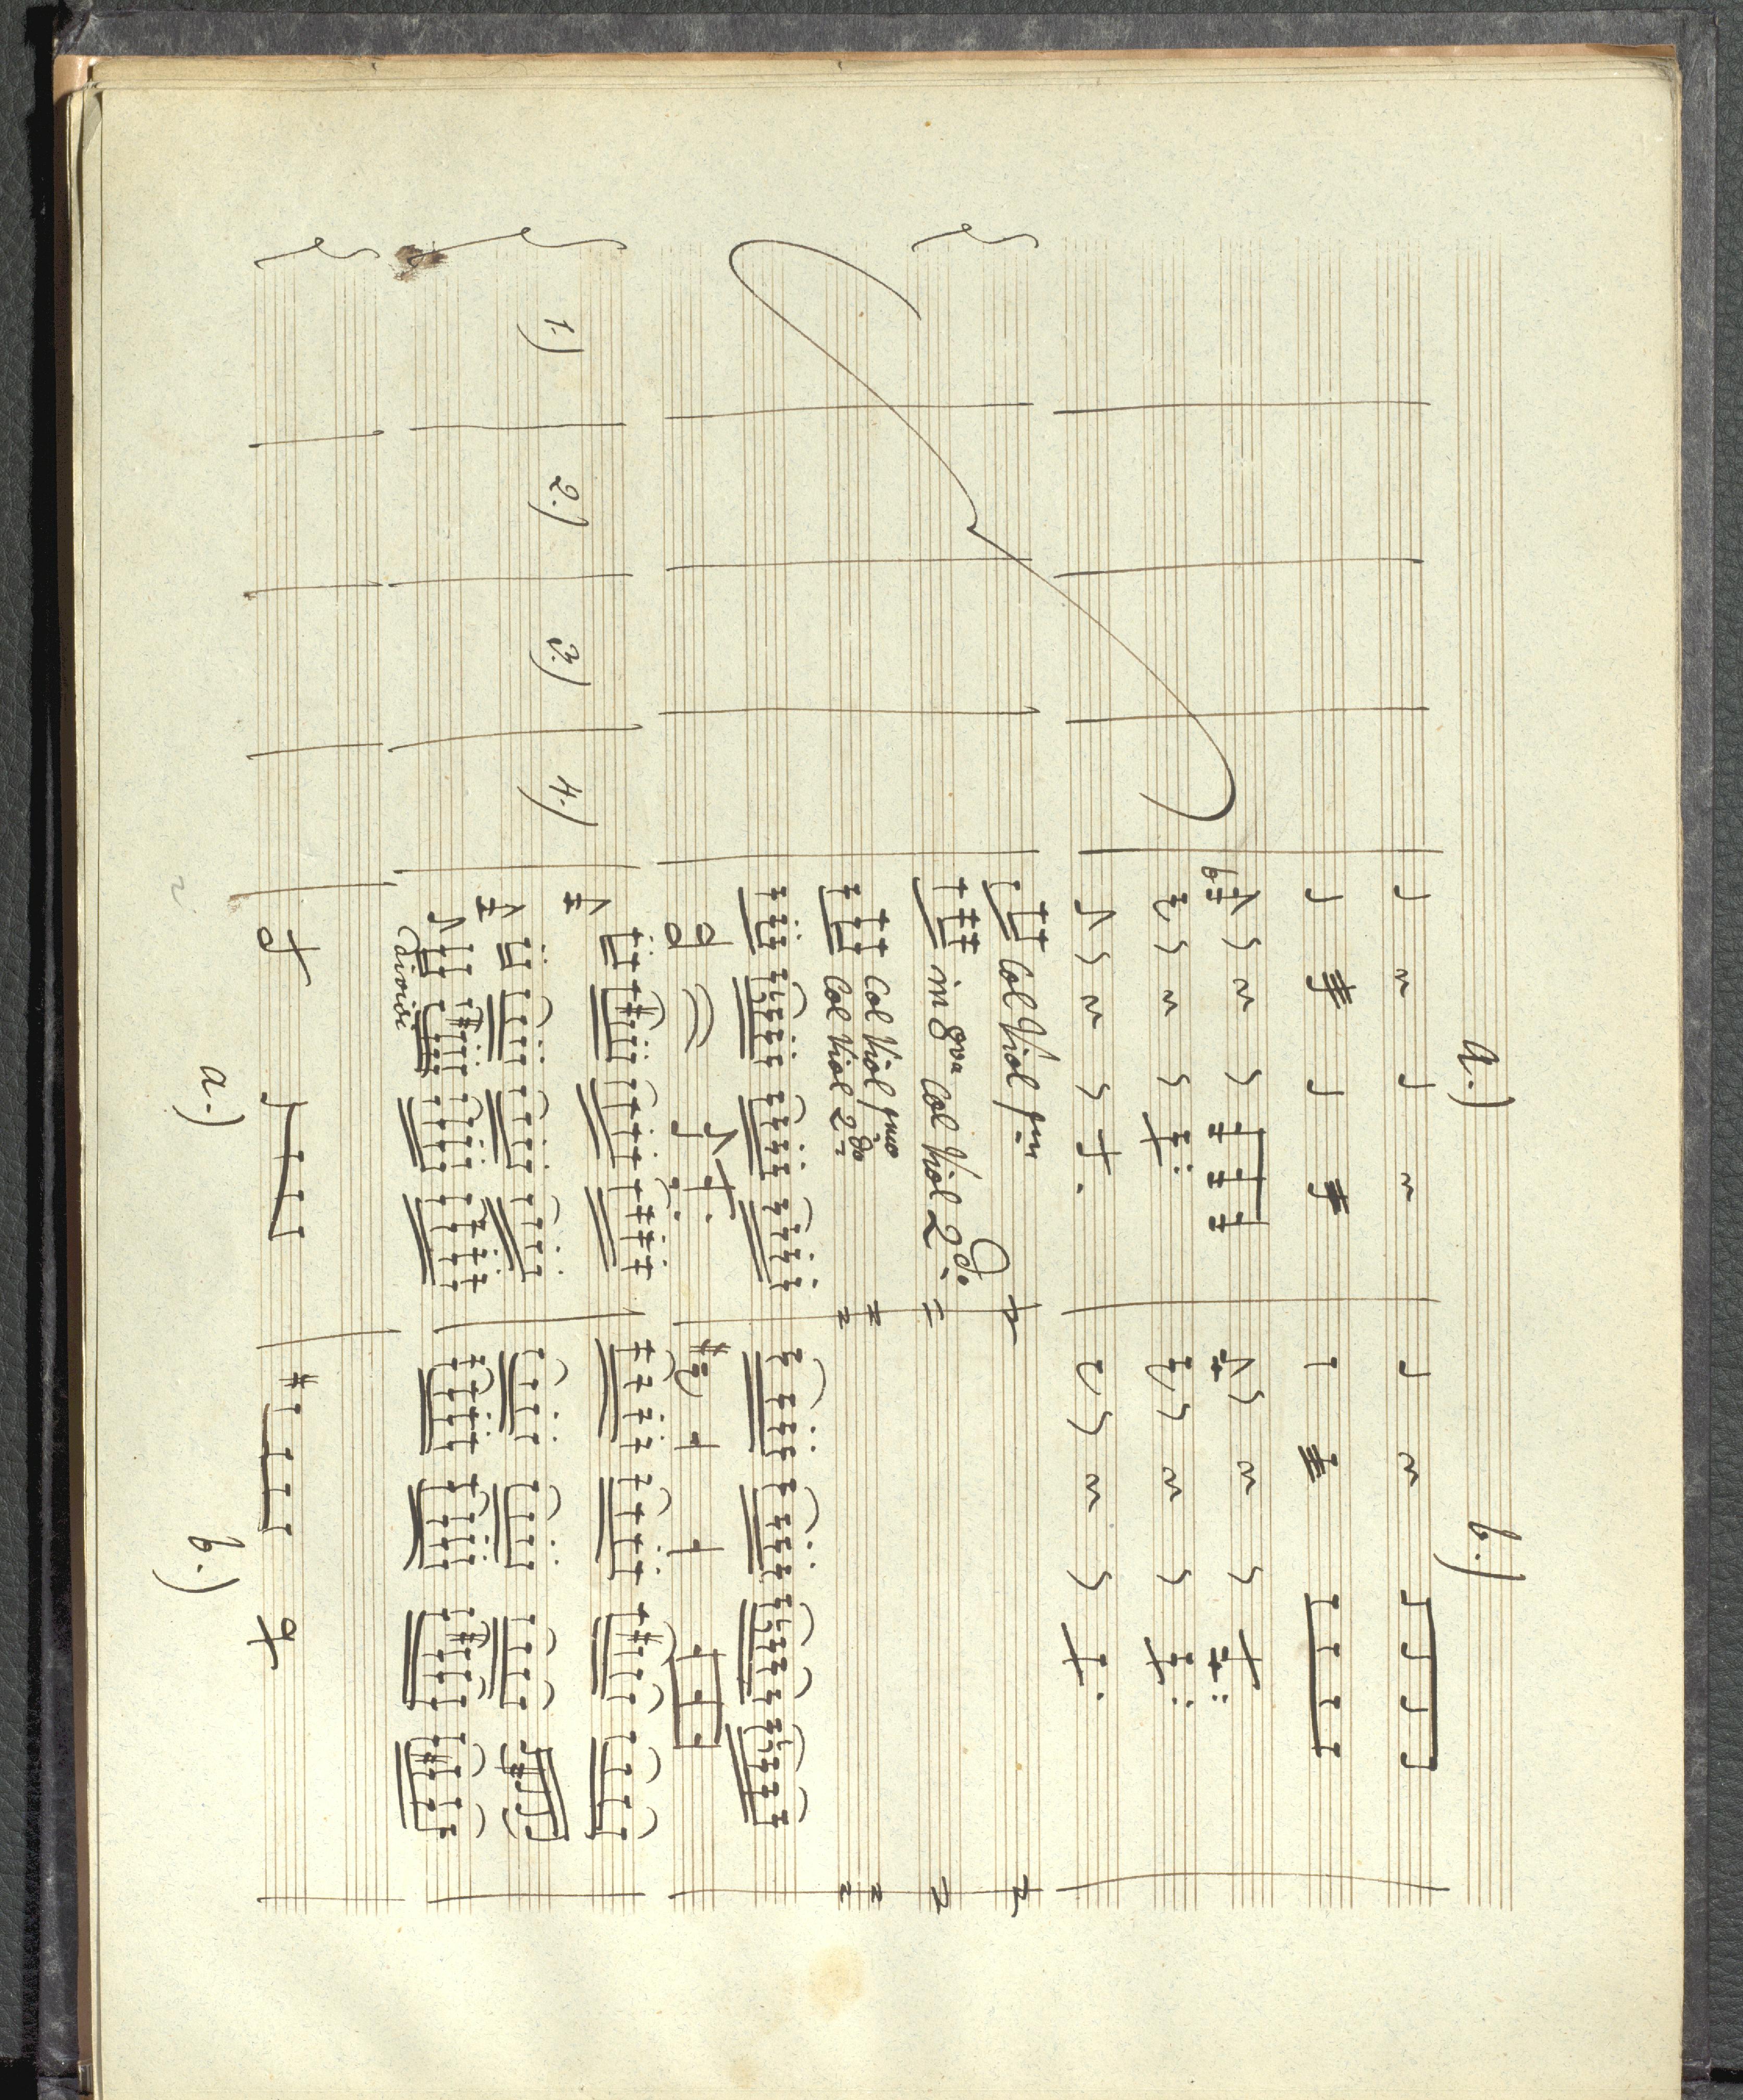 a.) b.)
Col Viol pmo
in 8va Col Viol 2do
Col Viol pmo
Col Viol 2do
1.) 2.) 3.) 4.)
divisi
a.) b.)